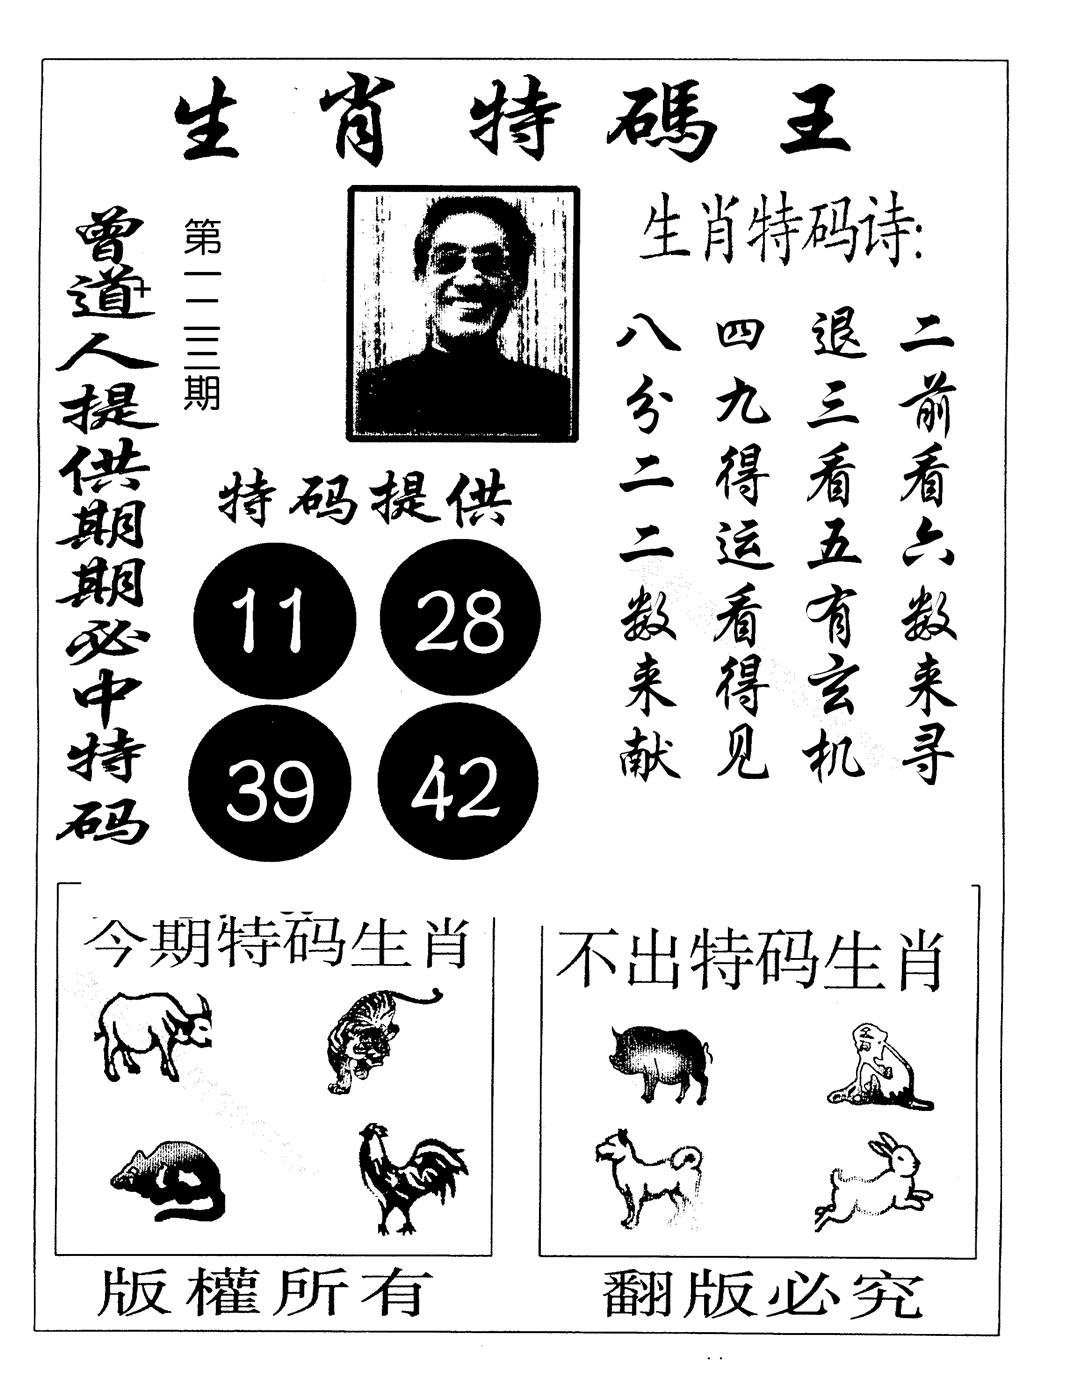 生肖特碼王
曾道人提供期期必中特码
第一一三期
生肖特码诗:
二前看六数来寻
退三看五有玄机
四九得运看得见
八分二二数来献
特码提供
11 28
39 42
今期特码生肖
不出特码生肖
版權所有
翻版必究